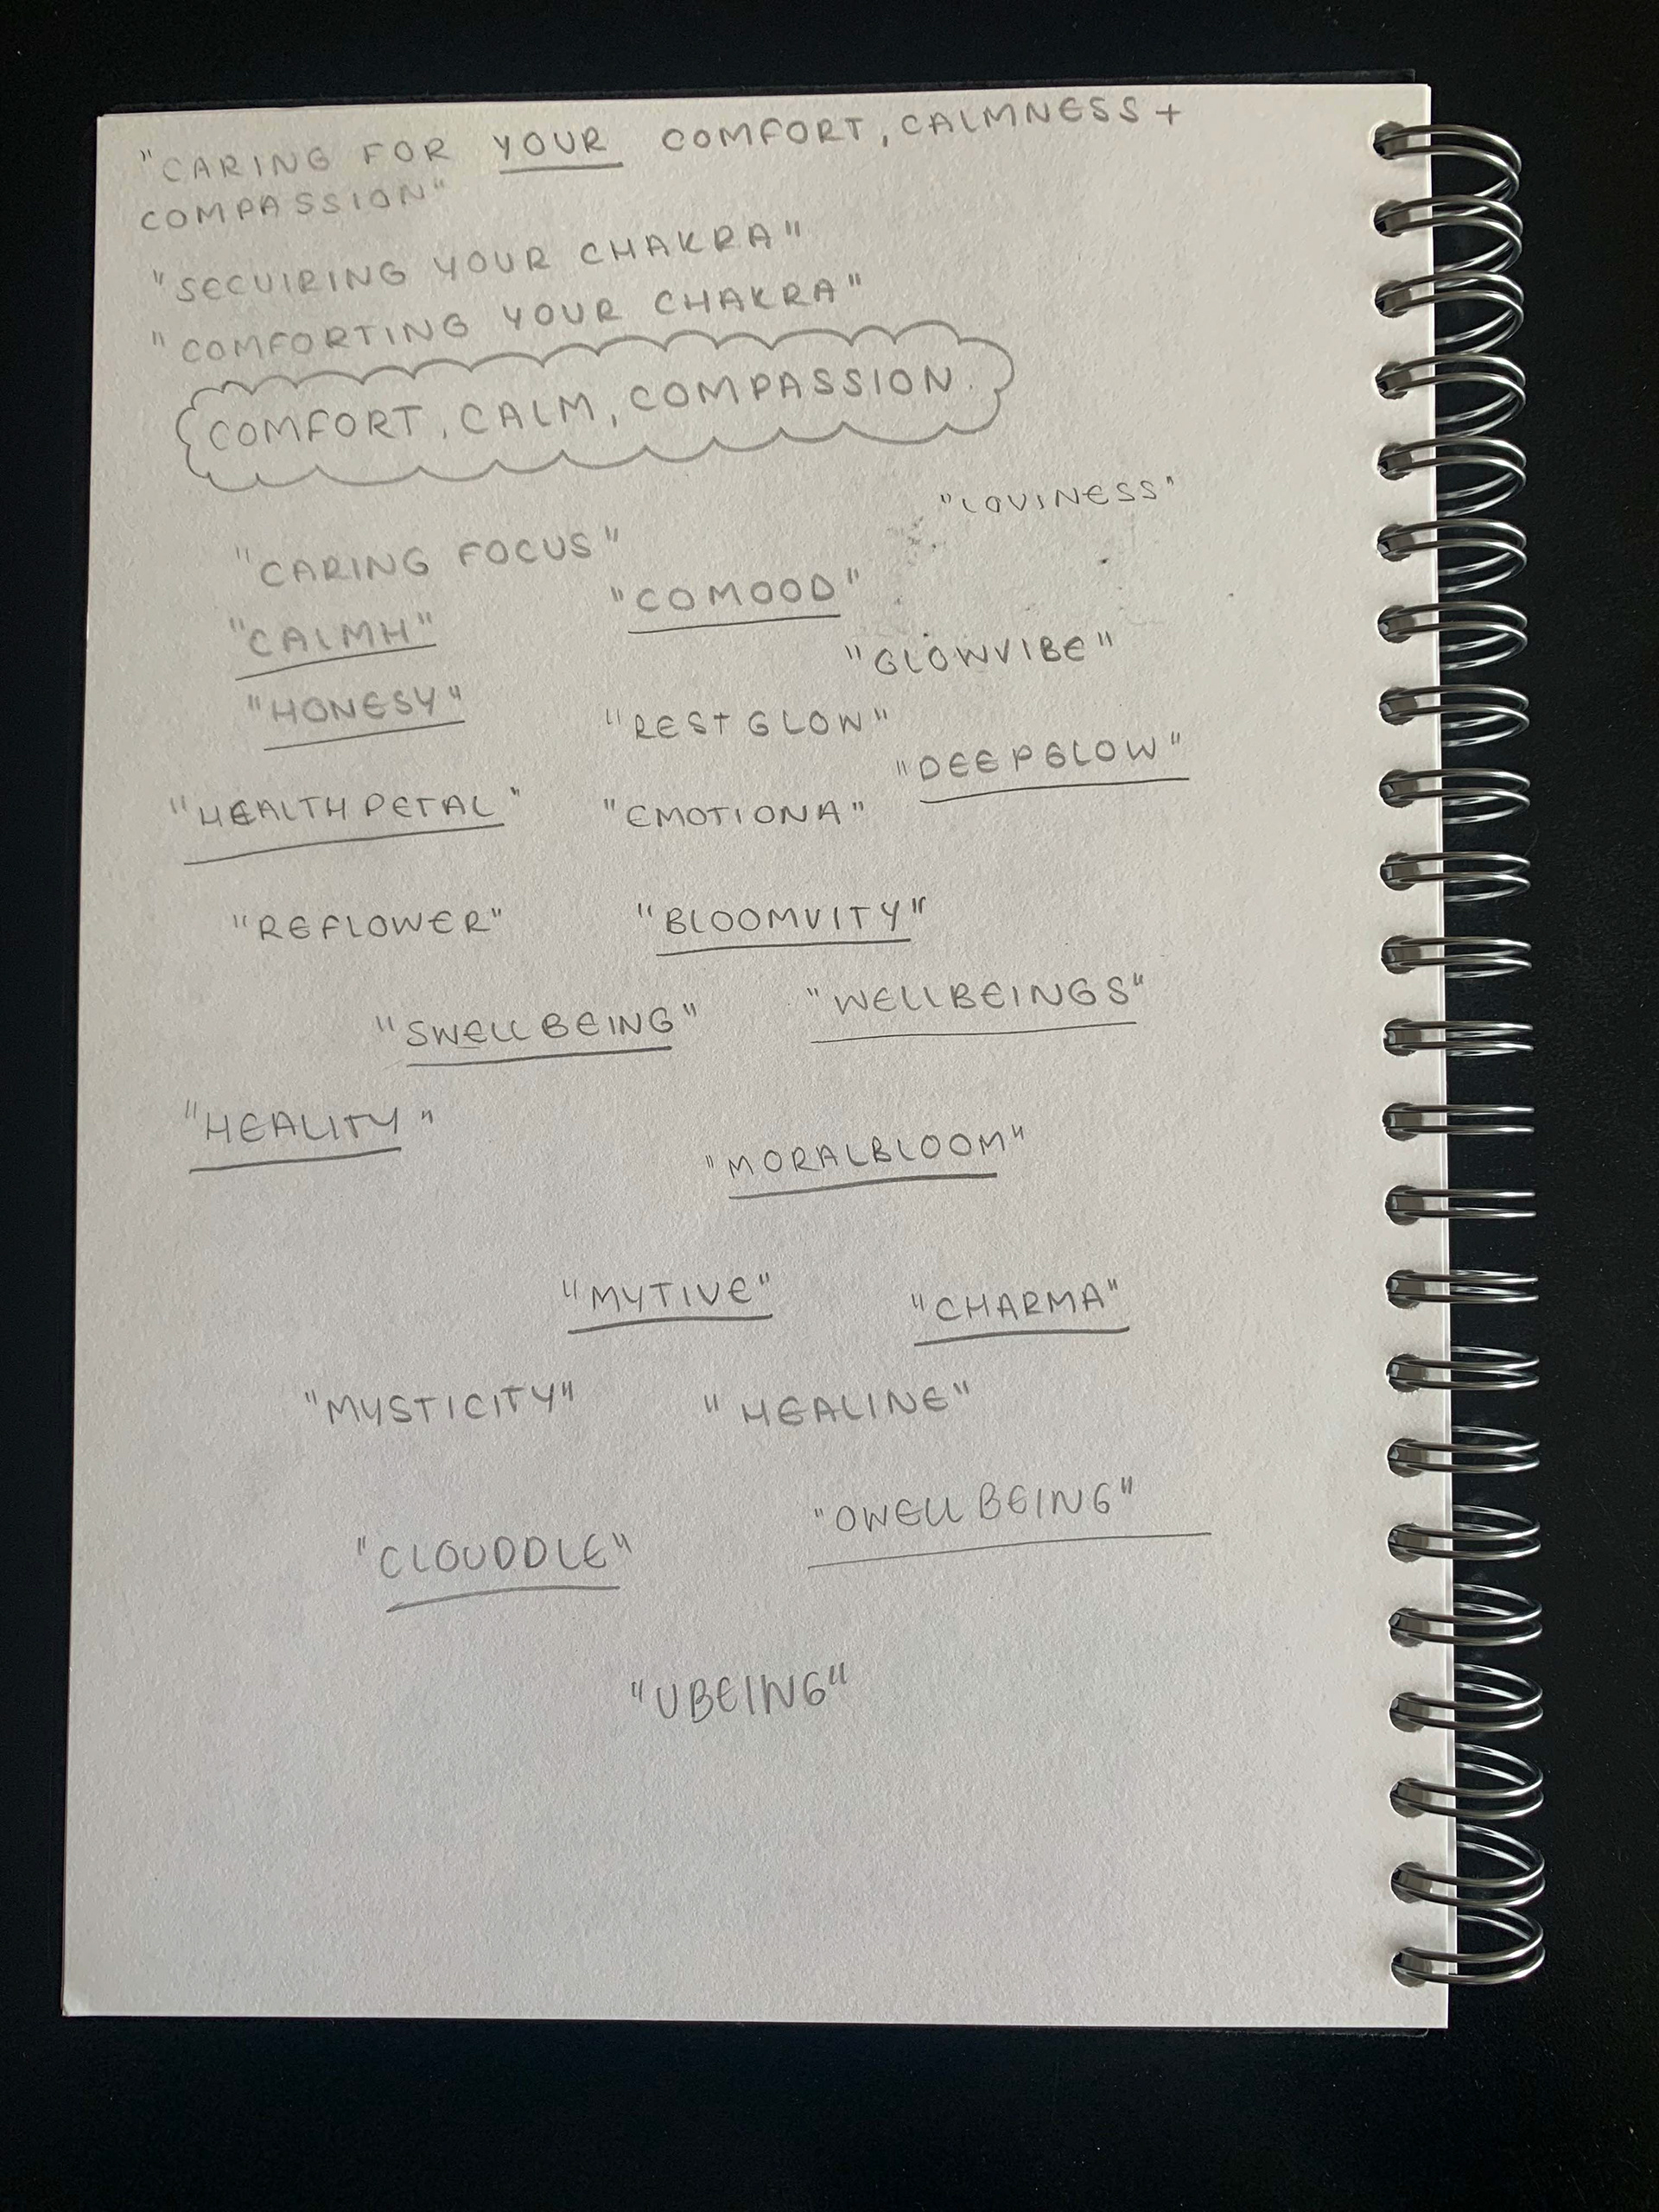 "CARING FOR YOUR COMFORT, CALMNESS +
COMPASSION"
"SECUIRING YOUR CHAKRA"
"COMFORTING YOUR CHAKRA"
COMFORT, CALM, COMPASSION.
"LOVINESS"
"CARING FOCUS"
"COMOOD"
"CALMH"
"GLOWVIBE"
"HONESY"
"REST GLOW"
"DEEPGLOW"
"HEALTH PETAL"
"EMOTIONA"
"REFLOWER"
"BLOOMVITY"
"WELLBEINGS"
"SWELL BEING"
"HEALITY"
"MORALBLOOM"
"MYTIVE"
"CHARMA"
"MYSTICITY"
"HEALINE"
"OWELL BEING"
"CLOUDDLE"
"UBEING"